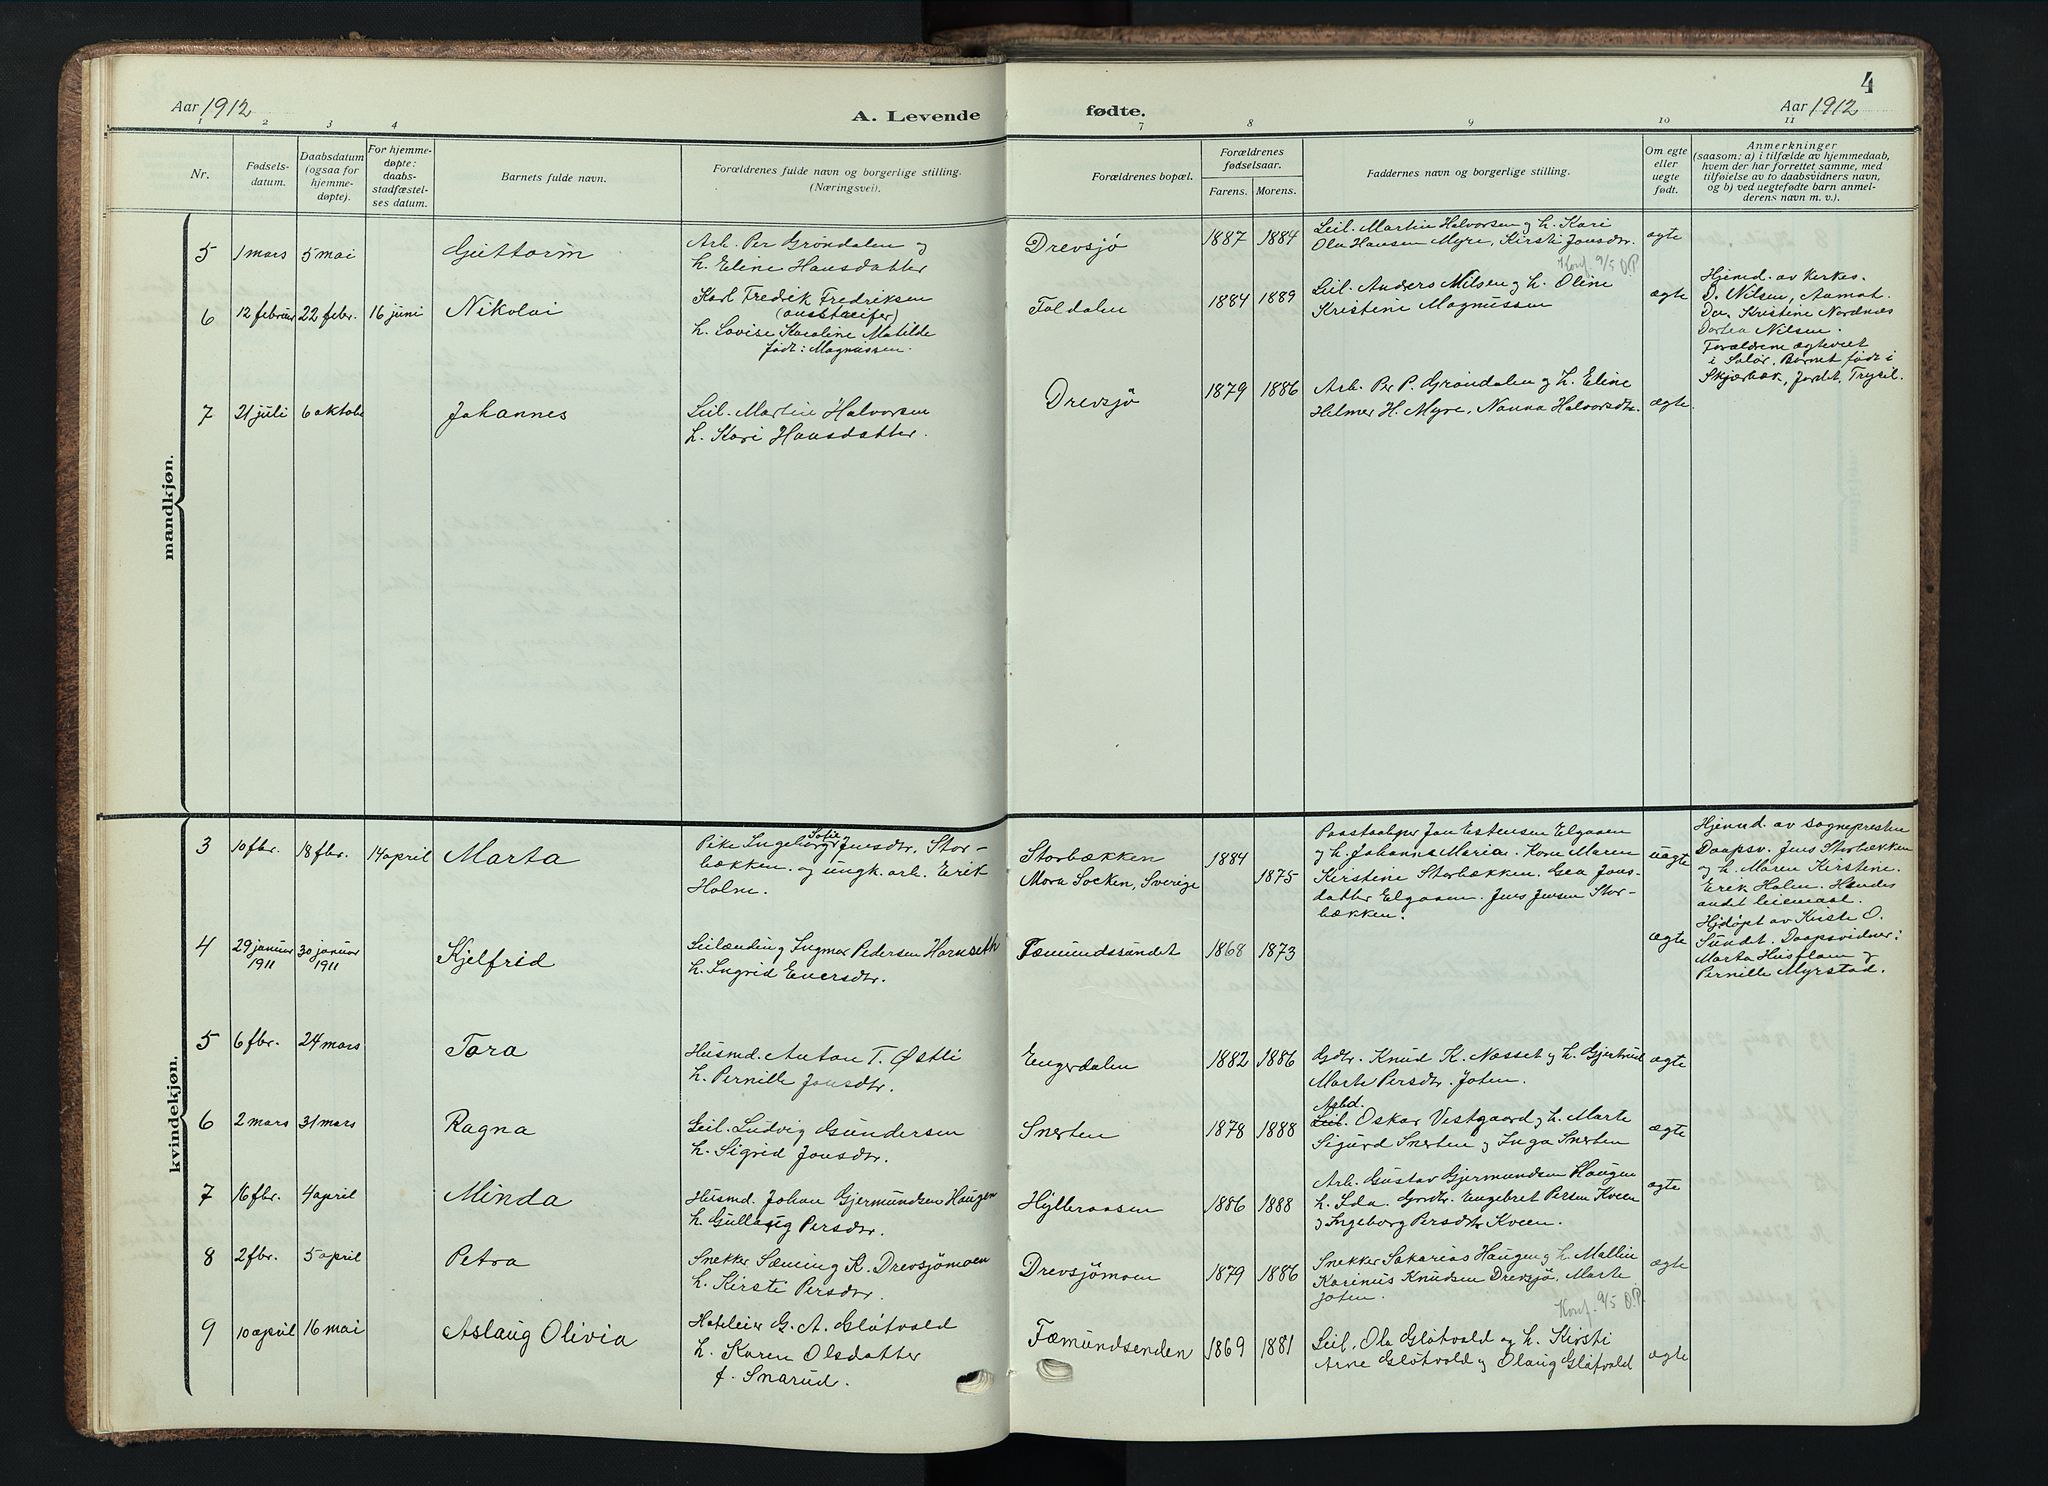 4
Aar 1912
A. Levende fødte.
Aar 1912
1 2 3 4 7 8 9 10 11
Nr.
Fødsels-
datum.
Daabsdatum
(ogsaa for
hjemme-
døpte).
For hjemme-
døpte:
daabs-
stadfæstel-
ses datum.
Barnets fulde navn.
Forældrenes fulde navn og borgerlige stilling.
(Næringsvei).
Forældrenes bopæl.
Forældrenes
fødselsaar.
Farens. Morens.
Faddernes navn og borgerlige stilling.
Om egte
eller
uegte
født.
Anmerkninger
(saasom: a) i tilfælde av hjemmedaab,
hvem der har forrettet samme, med
tilføielse av to daabsvidners navn,
og b) ved uegtefødte barn anmel-
derens navn m. v.).
mandkjøn.
5 1 mars 5 mai Guttorm
Arb. Per Grøndalen og
h. Eline Hansdatter
Drevsjø 1887 1884
Leil. Martin Halvorsen og h. Kari
Ola Hansen Myre, Kirsti Jonsdtr.
ægte
Konf. 9/5 O.P.
6 12 februar 22 febr. 16 juni Nikolai
Karl Fredrik Fredriksen
(omstreifer)
h. Lovise Karoline Matilde
født: Magnussen.
Foldalen 1884 1889
Leil. Anders Nilsen og h. Oline
Kristine Magnussen
ægte
Hjemd. av kirkes.
D. Nilsen, Aamot.
Dv. Kristine Nordnæs
Dortea Nilsen.
Forældrene ægteviet
i Solør. Barnet født i
Skjærbæk, Jordet, Trysil.
7 21 juli 6 oktobr Johannes
Leil. Martin Halvorsen
h. Kari Hansdatter.
Drevsjø 1879 1886
Arb. Per P. Grøndalen og h. Eline
Helmer H. Myre, Nanna Halvorsdtr.
ægte.
kvindekjøn.
3 10 fbr. 18 fbr. 14 april Marta
Pike Ingeborg Sofie Jensdtr. Stor-
bækken. og ungk. arb. Erik
Holm.
Storbækken
Mora Socken, Sverige
1884 1875
Paastaaliger Jon Estensen Elgaaen
og h. Johanne Maria. Kone Maren
Kirstine Storbækken. Gea Jons-
datter Elgaaen. Jens Jensen Stor-
bækken.
uægte
Hjemd. av sognepresten
Daapsv. Jens Storbækken
og h. Maren Kirstine.
Erik Holm. Hendes
andet leiermaal.
4 29 januar 1911 30 januar 1911 Kjelfrid
Leilænding Ingmar Pedersen Hornseth
h. Ingrid Eversdtr.
Fæmundssundet 1868 1873
ægte
Hjdøpt av Kirste O.
Sundet. Daapsvidner:
Marta Husflaen og
Pernille Myrstad.
5 6 fbr. 24 mars Tora
Husmd. Anton T. Østli
h. Pernille Jonsdtr.
Engerdalen 1882 1886
Gdtr. Knud K. Næsset og h. Gjertrud
Marte Persdtr. Joten.
ægte
6 2 mars 31 mars Ragna
Leil. Ludvig Gundersen
h. Sigrid Jonsdtr.
Snerten 1878 1888
Arbd.
Leil. Oskar Vestgaard og h. Marte
Sigurd Snerten og Inga Snerten
ægte
7 16 fbr. 4 april Minda
Husmd. Johan Gjermundsen Haugen
h. Gullaug Persdtr.
Hylleraasen 1886 1888
Arb. Gustav Gjermundsen Haugen
h. Ida. Grdtr. Engebret Persen Kveen
og Ingeborg Persdtr Kveen.
ægte
8 2 fbr. 5 april Petra
Snekker Sæming K. Drevsjømoen
h. Kirsti Persdtr.
Drevsjømoen 1879 1886
Snekker Sakarias Haugen og h. Mallin
Karinus Knudsen Drevsjø. Marte
Joten.
ægte
Konf. 9/5 O.P.
9 10 april 16 mai Aslaug Olivia
Hoteleier G. A. Gløtvold
h. Karen Olsdatter
f. Snarud.
Fæmundsenden 1869 1881
Leil. Ola Gløtvold og h. Kirsti
Arne Gløtvold og Olaug Gløtvold
ægte